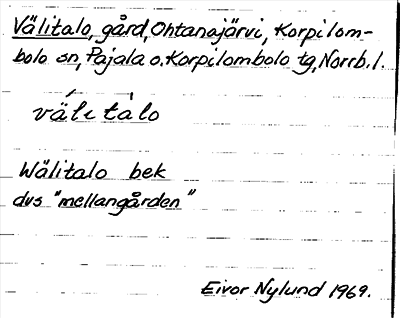 Välitalo, gård, Ohtanajärvi, Korpilom-
bolo sn, Pajala o. Korpilombolo tg, Norrb. l.
vä́litàlo
Wälitalo bek
dvs "mellangården"
Eivor Nylund 1969.